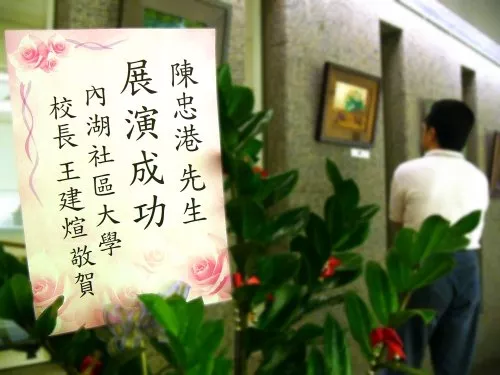 陳忠港 先生
展演成功
內湖社區大學
校長 王建煊敬賀